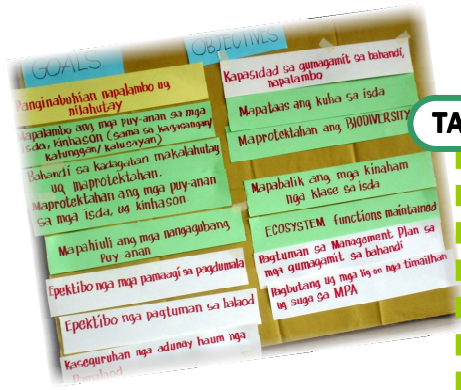 GOALS
Panginabuhian napalambo ug
nilahutay
Napalambo ang mga puy-anan sa mga
isda, kinhason (sama sa kagasangan,
katunggan/ kalusayan)
Bahandi sa kadagatan makalahutay
ug maprotektahan.
Maprotektahan ang mga puy-anan
sa mga isda, ug kinhason.
Mapahiuli ang mga nangagubang
Puy anan
Epektibo nga mga pamaagi sa pagdumala
Epektibo nga pagtuman sa balaod
Kaseguruhan nga adunay haum nga
OBJECTIVES
Kapasidad sa gumagamit sa bahandi,
napalambo
Mapataas ang kuha sa isda
Maprotektahan ang BIODIVERSITY
Mapabalik ang mga kinaham
nga klase sa isda
ECOSYSTEM functions maintained
Pagtuman sa Management Plan sa
mga gumagamit sa bahandi
Pagbutang ug mga lig on nga timailhan
ug suga sa MPA
TA